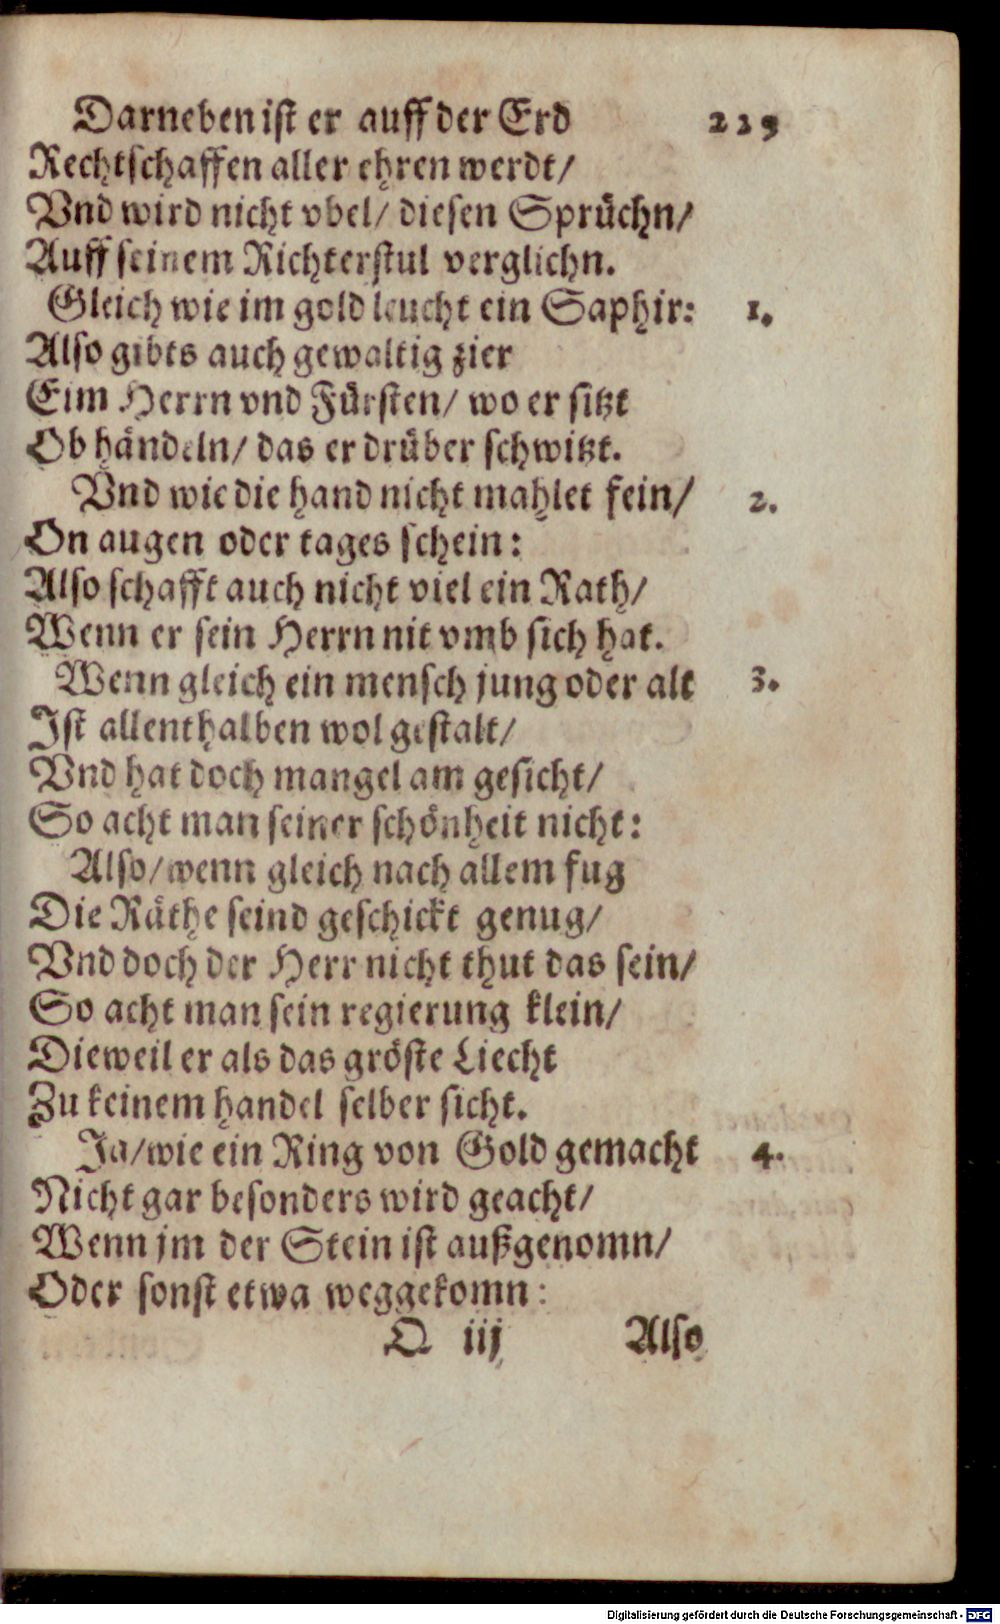 Darneben ist er auff der Erd 229
Rechtschaffen aller ehren werdt/
Vnd wird nicht vbel/ diesen Sprüchn/
Auff seinem Richterstul verglichn.
Gleich wie im gold leucht ein Saphir: 1.
Also gibts auch gewaltig zier
Eim Herrn vnd Fürsten/ wo er sitzt
Ob händeln/ das er drüber schwitzt.
Vnd wie die hand nicht mahlet fein/ 2.
On augen oder tages schein:
Also schafft auch nicht viel ein Rath/
Wenn er sein Herrn nit vmb sich hat.
Wenn gleich ein mensch jung oder alt 3.
Ist allenthalben wol gestalt/
Vnd hat doch mangel am gesicht/
So acht man seiner schönheit nicht:
Also/ wenn gleich nach allem fug
Die Räthe seind geschickt genug/
Vnd doch der Herr nicht thut das sein/
So acht man sein regierung klein/
Dieweil er als das gröste Liecht
Zu keinem handel selber sicht.
Ja/ wie ein Ring von Gold gemacht 4.
Nicht gar besonders wird geacht/
Wenn jm der Stein ist außgenomn/
Oder sonst etwa weggekomn:
Q iij Also
Digitalisierung gefördert durch die Deutsche Forschungsgemeinschaft - DFG